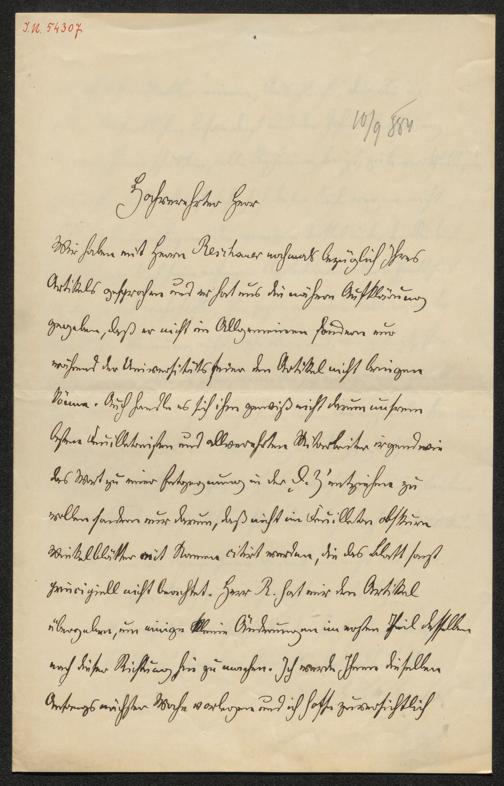 I.N. 54307
10/9 884
Hochverehrter Herr
Wir haben mit Herrn Reschauer nochmals bezüglich Ihres
Artikels gesprochen und er hat uns die nähere Aufklärung
gegeben, daß er nicht im Allgemeinen sondern nur
während der Universitätsfeier den Artikel nicht bringen
könne. Auch handle es sich ihm gewiß nicht darum unserem
besten Feuilletonisten und allverehrten Mitarbeiter irgendwie
das Wort zu einer Entgegnung in der D. Z. entziehen zu
wollen sondern nur darum, daß nicht im Feuilleton obskure
Winkelblätter mit Namen citirt werden, die das Blatt sonst
principiell nicht beachtet. Herr R. hat mir den Artikel
übergeben, um einige kleine Änderungen im ersten Theil desselben
nach dieser Richtung hin zu machen. Ich werde Ihnen dieselben
Anfangs nächster Woche vorlegen und ich hoffe zuversichtlich